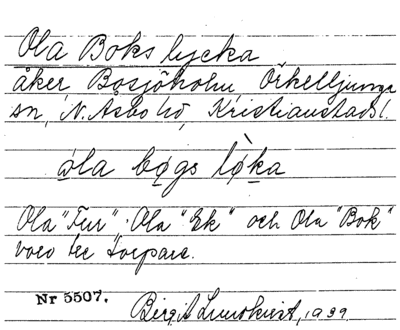 Ola Boks lycka
åker, Bosjöholm, Örkelljunga
sn, N. Åsbo hd, Kristianstads l.
ola bogs løka
Ola "Fur", Ola "Ek" och Ola "Bok"
voro tre torpare.
Nr 5507.
Birgit Lundkvist, 1939